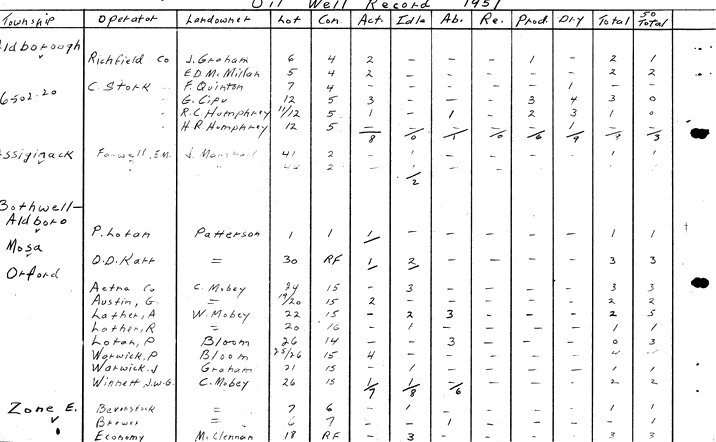 Oil Well Record 1951
Township Operator Landowner Lot Con. Act. Idle Ab. Re. Prod. Dry Total 50 Total
Aldborough
Richfield Co J. Graham 6 4 2 - - - 1 - 2 1
E.D. McMillan 5 4 2 - - - - - 2 2
C. Stork F. Quinton 7 4 - - - - - 1 - -
6502.20 " G. Cipu 12 5 3 - - - 3 4 3 0
" R.C. Humphrey 11/12 5 1 - 1 - 2 3 1 0
" H.R. Humphrey 12 5 - - - - - 1 - -
8 0 1 0 6 9
Assiginack Farwell, E.M. J. Marshall 41 2 - 1 - - - - 1 1
2 - 1
2
Bothwell-
Aldboro
P. Lotan Patterson 1 1 1 - - - - - 1 1
Mosa
O.D. Karr = 30 RF 1 2 - - - - 3 3
Orford
Aetna Co C. Mobey 24 15 - 3 - - - - 3 3
Austin, G. = 19/20 15 2 - - - - - 2 2
Lather, A W. Mobey 22 15 - 2 3 - - - 2 5
Lather, R = 20 16 - 1 - - - - 1 1
Lotan, P Bloom 26 14 - - 3 - - - 0 3
Warwick, P Bloom 25/26 15 4 - - - - -
Warwick, J Graham 21 15 - 1 - - - - 1 1
Winnett, J.W.G. C. Mobey 26 15 1 1 - - - - 2 2
7 8 6
Zone E. Beverstock = 7 6 - 1 - - - - 1 1
Brewer = 6 7 - - 1 - - - - 1
Economy McClennan 18 RF - 3 - - - - 3 3